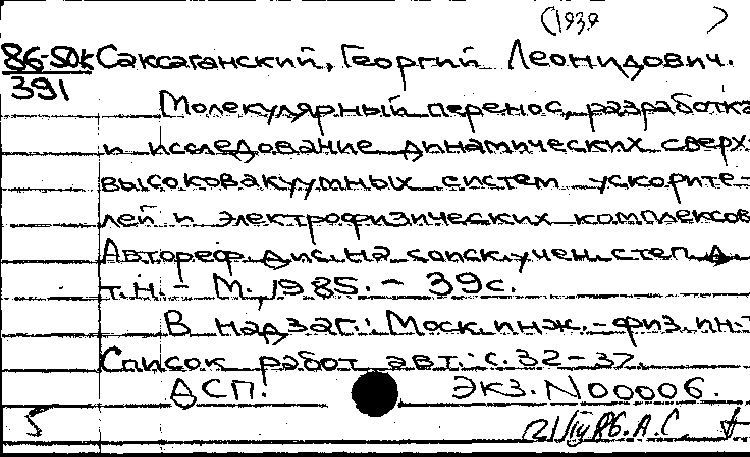 (1939 )
86-50к Саксаганский, Георгий Леонидович.
391
Молекулярный перенос, разработка
и исследование динамических сверх-
высоковакуумных систем ускорите-
лей и электрофизических комплексов
Автореф. дис. на соиск. учен. степ. д.
т.н. - М., 1985. - 39с.
В надзаг.: Моск. инж.-физ. ин-т
Список работ авт.: с. 32-37.
ДСП. Экз. N00006.
5 А.С.